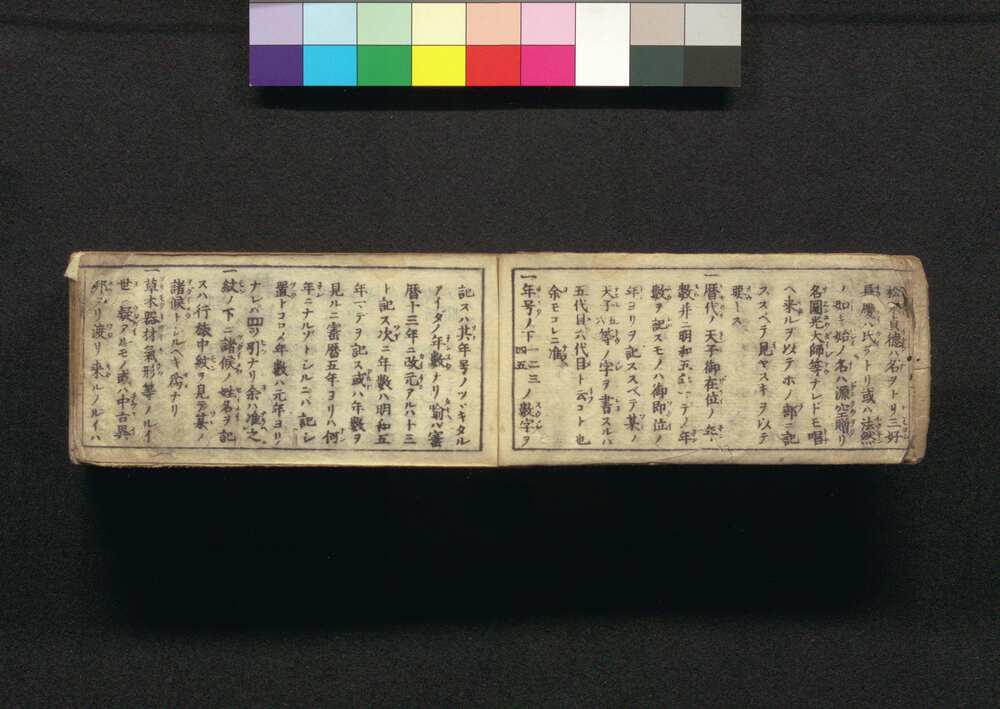 松永貞徳ハ名ヲトリ三好
長慶ハ氏ヲトリ或ハ法然
ノ如キ始ノ名ハ源空贈リ
名圓光大師等ナレドモ唱
ヘ来ルヲ以テホノ部ニ記
ス スベテ見ヤスキヲ以テ
要トス
一暦代ノ天子御在位ノ年
数并ニ明和五 マテノ年
数ヲ記スモノハ御即位ノ
年ヨリヲ記ススベテ某ノ
天子ノ五六等ノ字ヲ書スルハ
五代目六代目ト云コト也
余モコレニ准ス
一年号ノ下一二三四五ノ数字ヲ
記スハ其年号ノツヾキタル
アイダノ年数ナリ 宝暦
暦十三年ニ改元アルハ十三
ト記ス次ニ年数ハ明和五
年マテヲ記ス或ハ年数ヲ
見ルニ宝暦五年ヨリハ何
年ニナルゾトシルニハ記シ
置トコロノ年数ハ元年ヨリ
ナレバ四ツ引ナリ余ハ准之
一紋ノ下ニ諸候ノ姓名ヲ記
スハ行旅中紋ヲ見テ某ノ
諸候トシルベキ為ナリ
一草木器材気形等ノルイ
世ニ疑アルモノ或ハ中古異
邦ヨリ渡リ来ルノルイハ